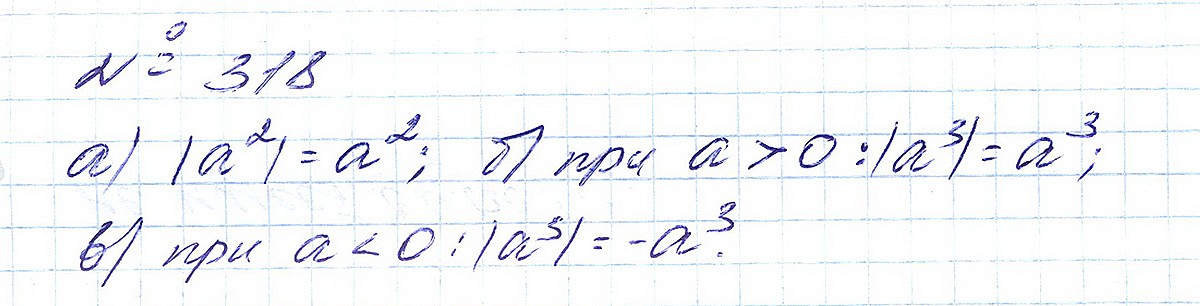 № 318
а) |a²| = a²; б) при a > 0 : |a³| = a³;
в) при a < 0 : |a³| = -a³.